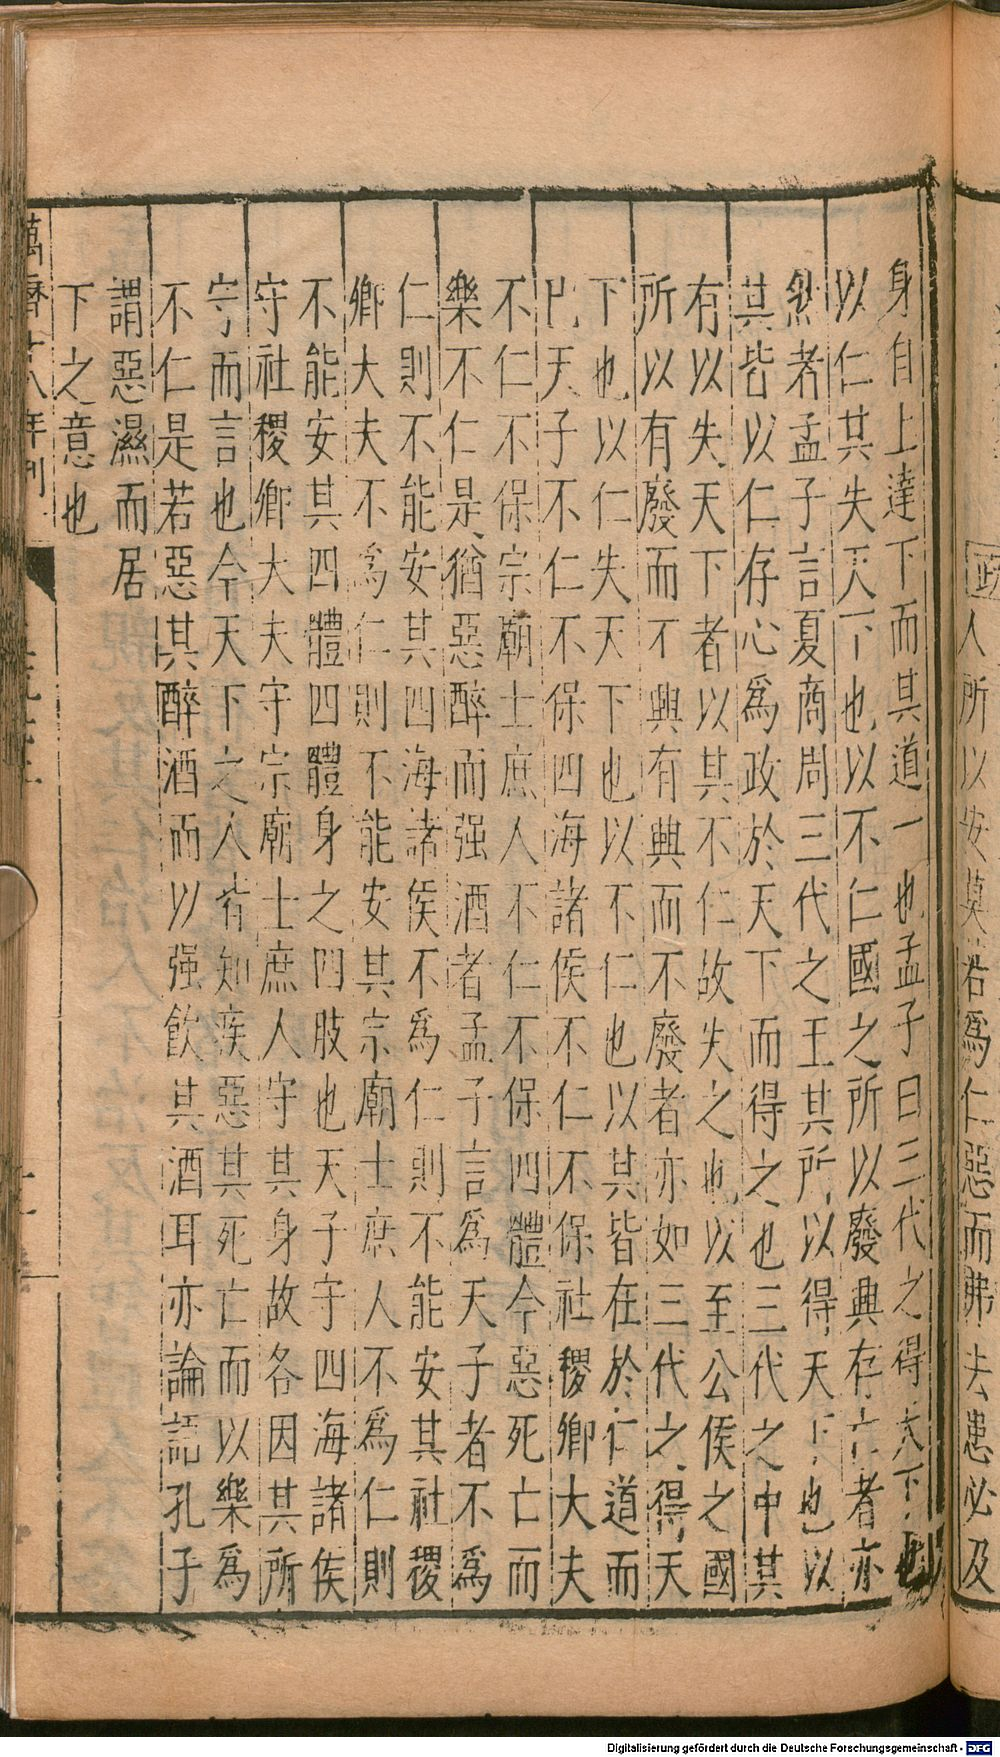 人所以安莫若爲仁惡而弗去患必及
身自上達下而其道一也孟子曰三代之得天下也
以仁其失天下也以不仁國之所以廢興存亡者亦
然者孟子言夏商周三代之王其所以得天下也以
其皆以仁存心爲政於天下而得之也三代之中其
有以失天下者以其不仁故失之也以至公侯之國
所以有廢而不興有興而不廢者亦如三代之得天
下也以仁失天下也以不仁也以其皆在於仁道而
已天子不仁不保四海諸侯不仁不保社稷卿大夫
不仁不保宗廟士庶人不仁不保四體今惡死亡而
樂不仁是猶惡醉而强酒者孟子言爲天子者不爲
仁則不能安其四海諸侯不爲仁則不能安其社稷
卿大夫不爲仁則不能安其宗廟士庶人不爲仁則
不能安其四體四體身之四肢也天子守四海諸侯
守社稷卿大夫守宗廟士庶人守其身故各因其所
守而言也今天下之人皆知疾惡其死亡而以樂爲
不仁是若惡其醉酒而以强飲其酒耳亦論語孔子
謂惡濕而居
下之意也
萬曆十八年刊
Digitalisierung gefördert durch die Deutsche Forschungsgemeinschaft - DFG